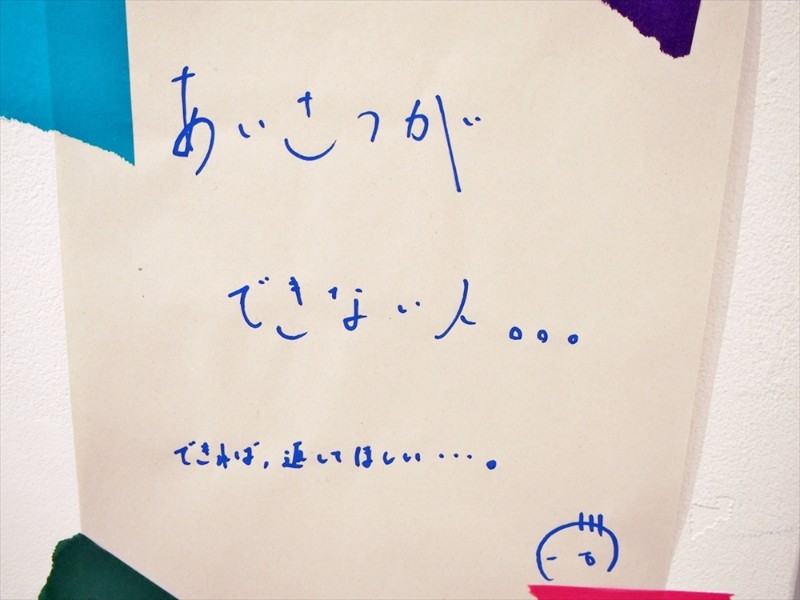 あいさつが
できない人。。。
できれば、返してほしい…。